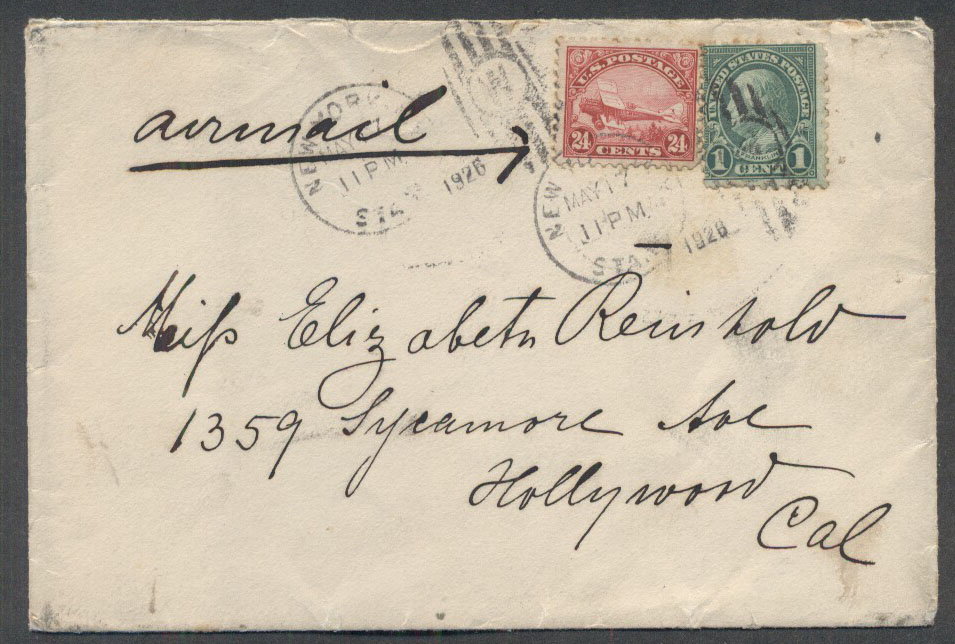 U.S. POSTAGE
24 CENTS 24
UNITED STATES POSTAGE
FRANKLIN
1 CENT 1
airmail
NEW YORK
MAY
11 PM
STA.
1926
NEW
MAY 17
11 PM
STA.
1926
Miss Elizabeth Reinhold
1359 Sycamore Ave
Hollywood
Cal